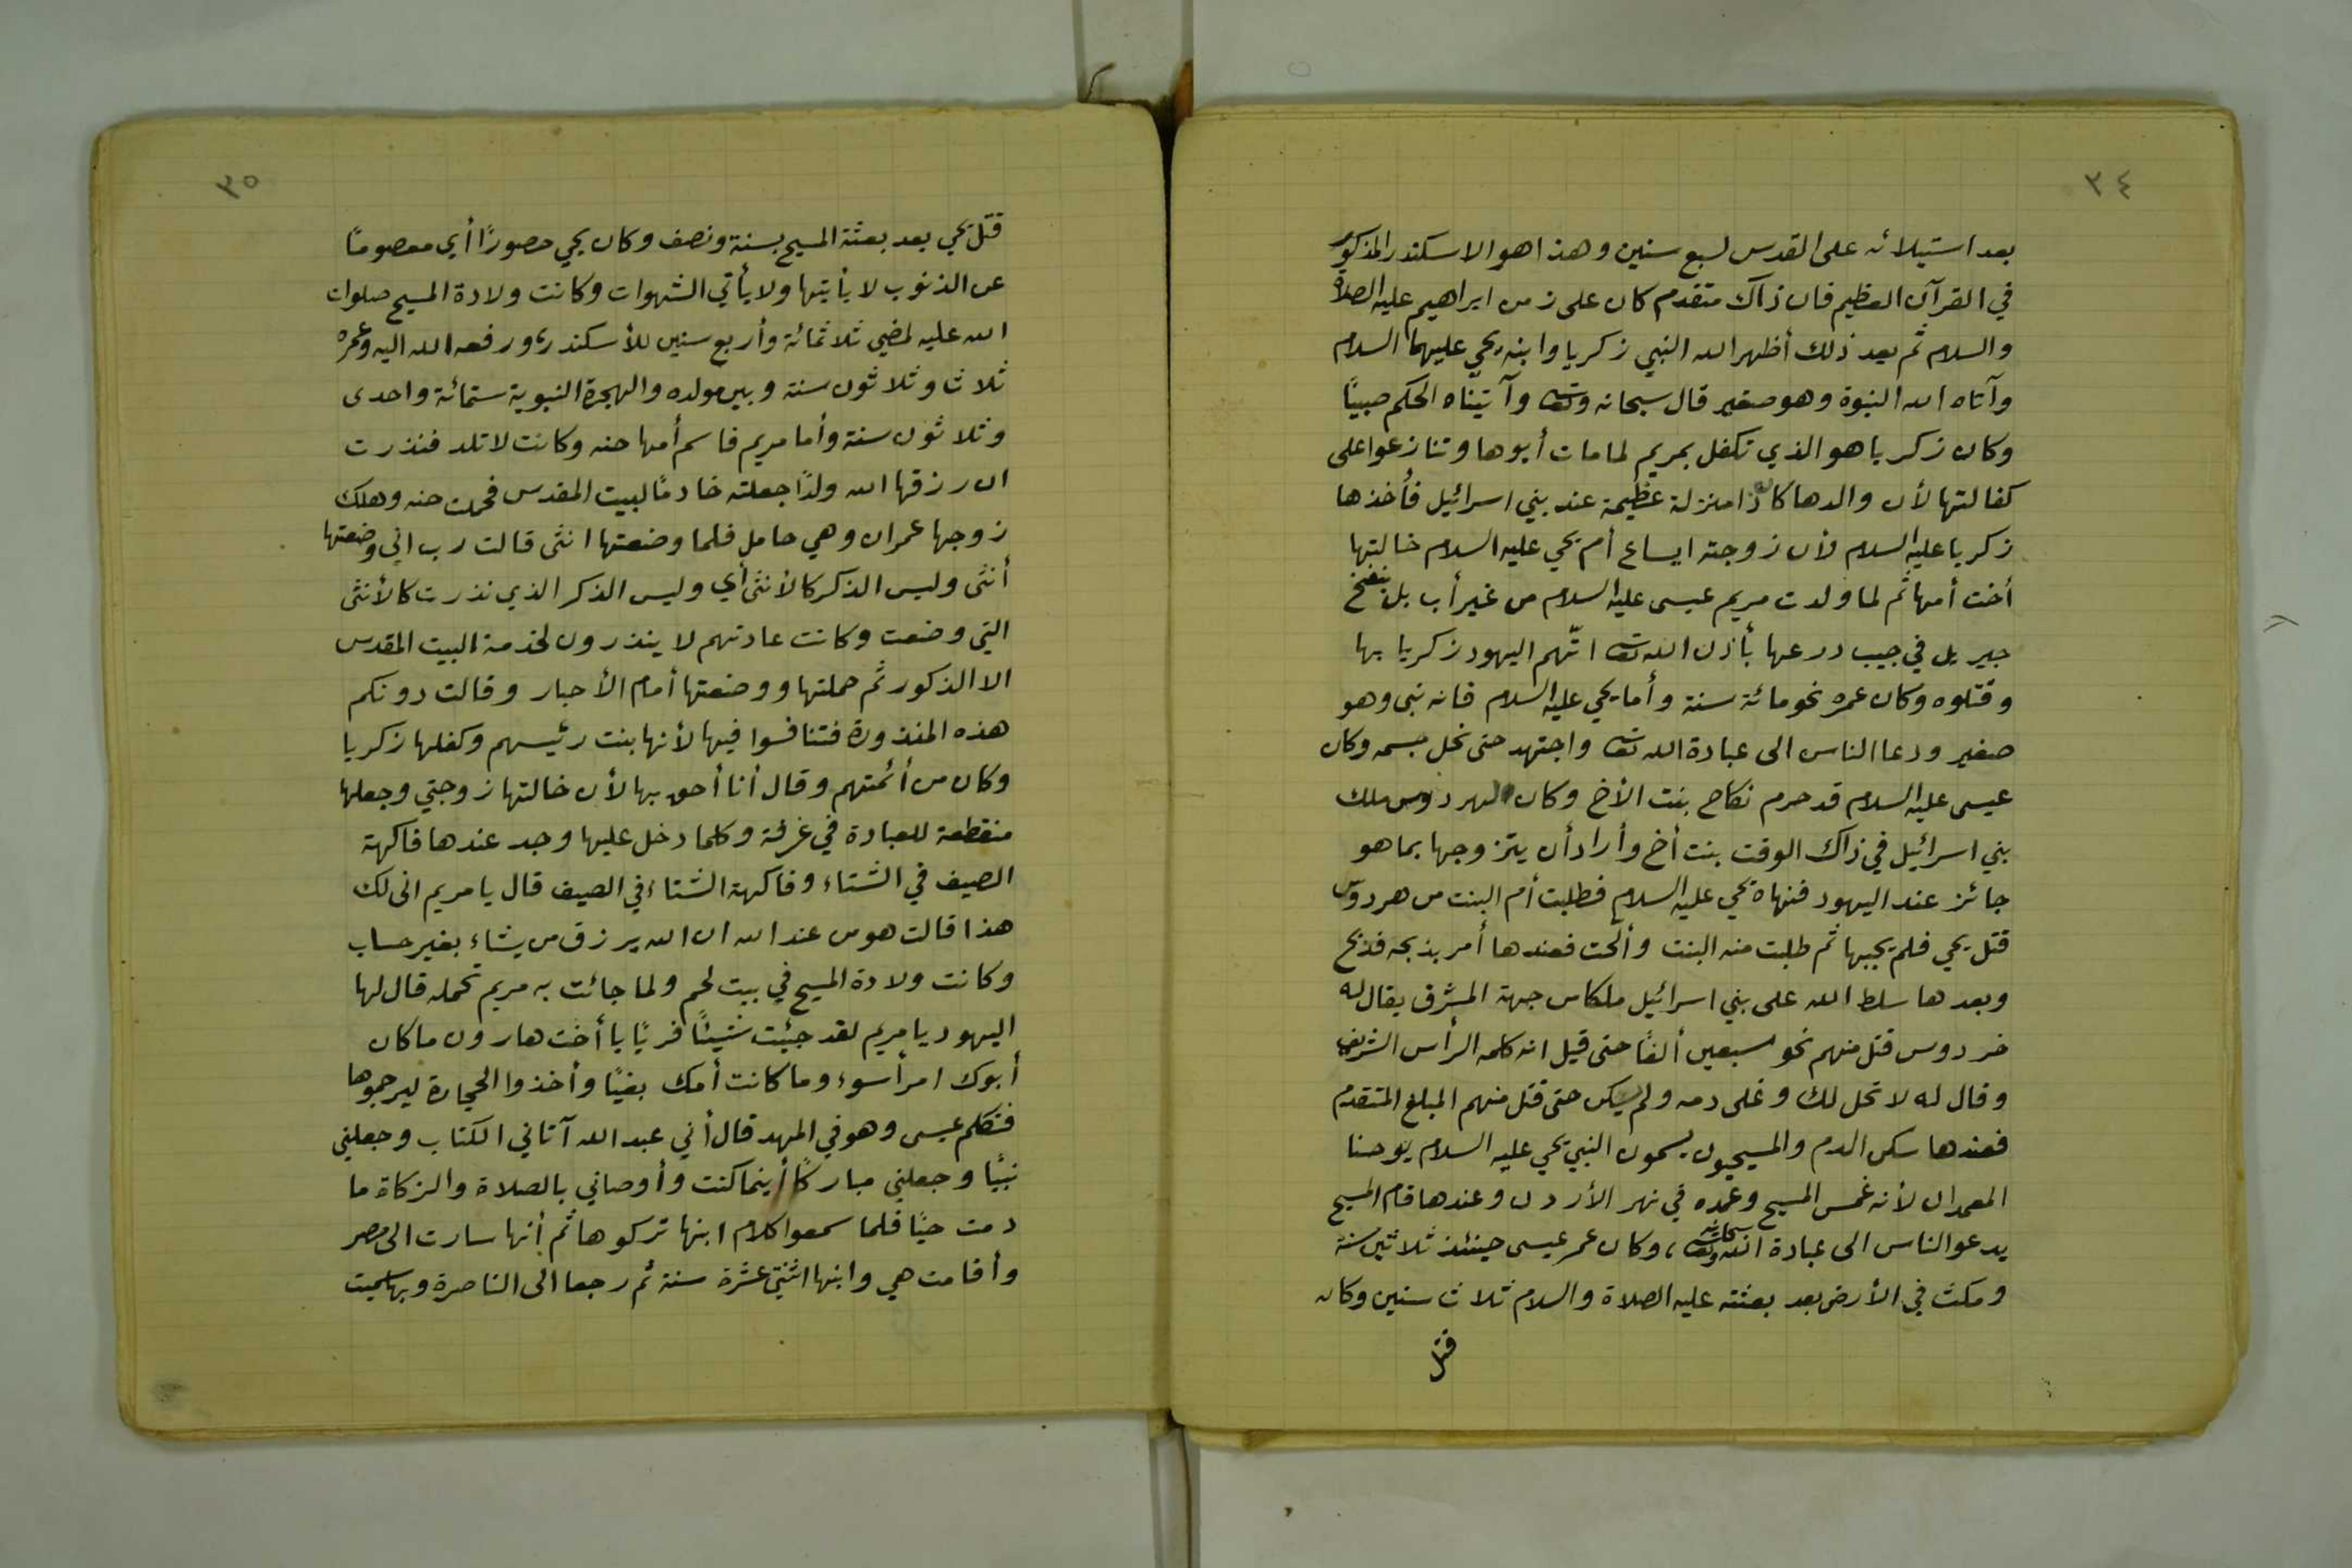 ٣٤
بعد استيلائه على القدس لسبع سنين وهذا هو الاسكندر المذكور
في القرآن العظيم فان ذاك متقدم كان على زمن ابراهيم عليه الصلاة
والسلام ثم بعد ذلك أظهر الله النبي زكريا وابنه يحيى عليهما السلام
وآتاه الله النبوة وهو صغير قال سبحانه وتعالى وآتيناه الحكم صبيًا
وكان زكريا هو الذي تكفل بمريم لما مات أبوها وتنازعوا على
كفالتها لأن والدها كان ذا منزلة عظيمة عند بني اسرائيل فأخذها
زكريا عليه السلام لأن زوجته ايساع أم يحي عليه السلام خالتها
أخت أمها ثم لما ولدت مريم عيسى عليه السلام من غير أب بل بنفخ
جبريل في جيب درعها بأذن الله تعالى اتّهم اليهود زكريا بها
وقتلوه وكان عمره نحو مائة سنة وأما يحي عليه السلام فانه نبى وهو
صغير ودعا الناس الى عبادة الله تعالى واجتهد حتى نحل جسمه وكان
عيسى عليه السلام قد حرم نكاح بنت الأخ وكان لهردوس ملك
بني اسرائيل في ذاك الوقت بنت أخ وأراد أن يتزوجها بما هو
جائز عند اليهود فنهاه يحي عليه السلام فطلبت أم البنت من هردوس
قتل يحي فلم يجبها ثم طلبت منه البنت وألحت فعندها أمر بذبحه فذبح
وبعدها سلط الله على بني اسرائيل ملكا من جهة المشرق يقال له
خردوس قتل منهم نحو سبعين ألفًا حتى قيل انه كلمه الرأس الشريف
وقال له لا تحل لك وغلى دمه ولم يسكن حتى قتل منهم المبلغ المتقدم
فعندها سكن الدم والمسيحيون يسمون النبي يحي عليه السلام يوحنا
المعمدان لأنه غمس المسيح وعمده في نهر الأردن وعندها قام المسيح
يدعو الناس الى عبادة الله سبحانه وتعالى، وكان عمر عيسى حينئذ ثلاثين سنة
ومكث في الأرض بعد بعثته عليه الصلاة والسلام ثلاث سنين وكان
قتل
٣٥
قتل يحي بعد بعثة المسيح بسنة ونصف وكان يحي حصورًا أي معصومًا
عن الذنوب لا يأتيها ولا يأتي الشهوات وكانت ولادة المسيح صلوات
الله عليه لمضي ثلاثمائة وأربع سنين للأسكندر، ورفعه الله اليه وعمره
ثلاث وثلاثون سنة وبين مولده والهجرة النبوية ستمائة واحدى
وثلاثون سنة وأما مريم فاسم أمها حنه وكانت لا تلد فنذرت
ان رزقها الله ولدًا جعلته خادمًا لبيت المقدس فحملت حنه وهلك
زوجها عمران وهي حامل فلما وضعتها انثى قالت رب اني وضعتها
أنثى وليس الذكر كالأنثى أي وليس الذكر الذي نذرت كالأنثى
التي وضعت وكانت عادتهم لا ينذرون لخدمة البيت المقدس
الا الذكور ثم حملتها ووضعتها أمام الأحبار وقالت دونكم
هذه المنذورة فتنافسوا فيها لأنها بنت رئيسهم وكفلها زكريا
وكان من أئمتهم وقال أنا أحق بها لأن خالتها زوجتي وجعلها
منقطعة للعبادة في غرفة وكلما دخل عليها وجد عندها فاكهة
الصيف في الشتاء وفاكهة الشتاء في الصيف قال يا مريم انى لك
هذا قالت هو من عند الله ان الله يرزق من يشاء بغير حساب
وكانت ولادة المسيح في بيت لحم ولما جائت به مريم تحمله قال لها
اليهود يا مريم لقد جئت شيئًا فريًا يا أخت هارون ما كان
أبوك امرأ سوء وما كانت أمك بغيًا وأخذوا الحجارة ليرجموها
فتكلم عيسى وهو في المهد قال أني عبد الله آتاني الكتاب وجعلني
نبيًا وجعلني مباركًا أينما كنت وأوصاني بالصلاة والزكاة ما
دمت حيًا فلما سمعوا كلام ابنها تركوها ثم أنها سارت الى مصر
وأقامت هي وابنها اثنتي عشرة سنة ثم رجعا الى الناصرة وبها سميت